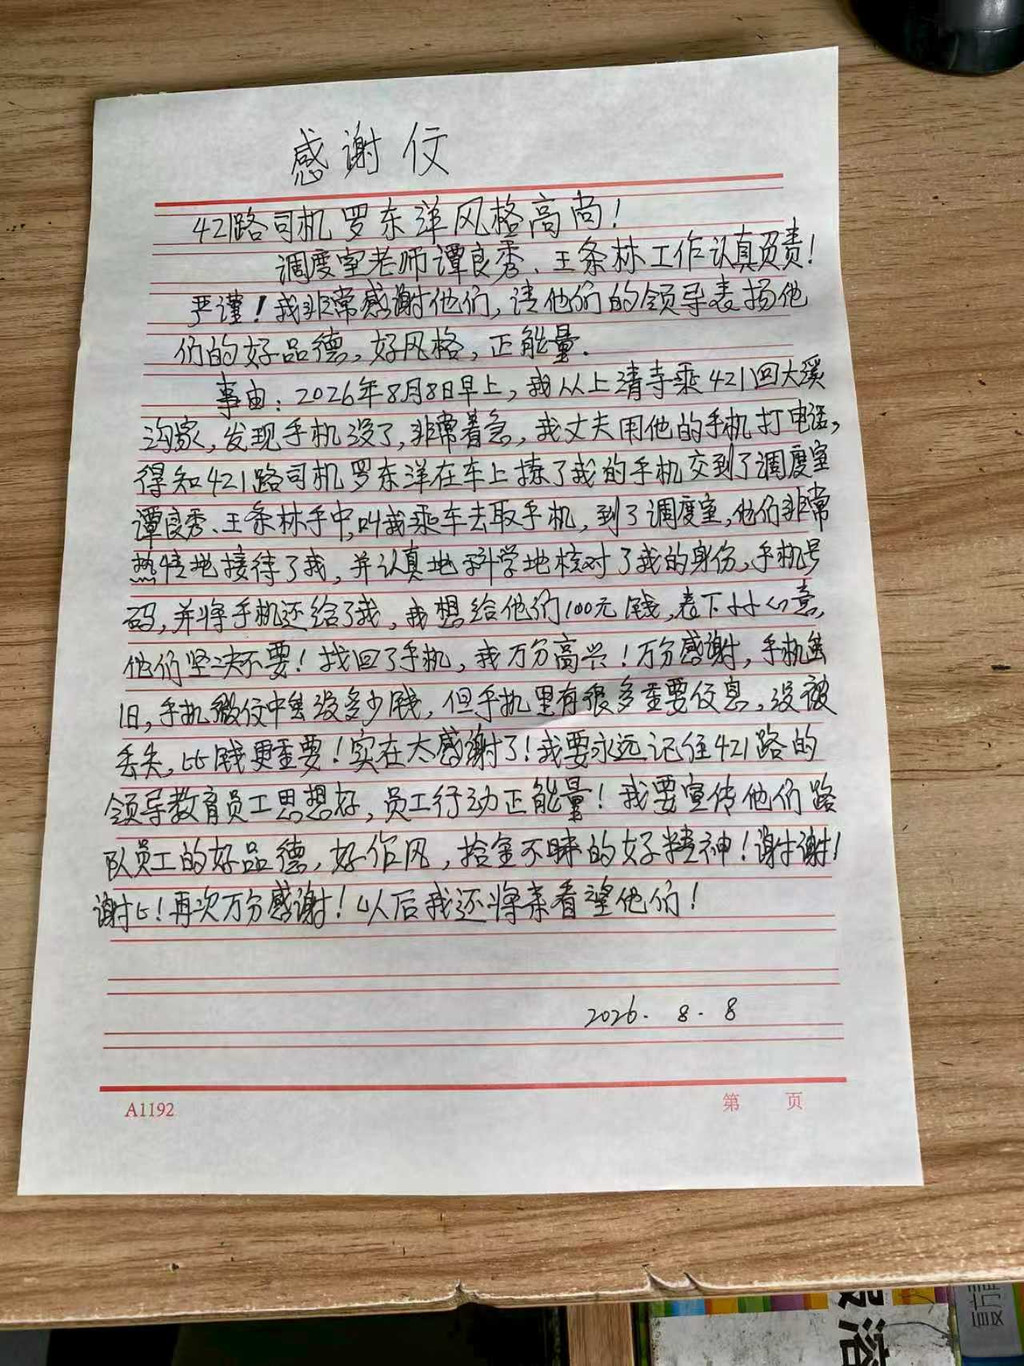 感谢信
421路司机罗东洋风格高尚！
调度室老师谭良秀、王条林工作认真负责！
严谨！我非常感谢他们，请他们的领导表扬他
们的好品德，好风格，正能量.
事由：2026年8月8日早上，我从上清寺乘421回大溪
沟家，发现手机没了，非常着急，我丈夫用他的手机打电话，
得知421路司机罗东洋在车上揀了我的手机交到了调度室
谭良秀、王条林手中，叫我乘车去取手机，到了调度室，他们非常
热情地接待了我，并认真地科学地核对了我的身份，手机号
码，并将手机还给了我，我想给他们100元钱，表下小小心意，
他们坚决不要！找回了手机，我万分高兴！万分感谢，手机虽
旧，手机微信中虽没多少钱，但手机里有很多重要信息，没被
丢失，比钱更重要！实在太感谢了！我要永远记住421路的
领导教育员工思想好，员工行动正能量！我要宣传他们路
队员工的好品德，好作风，拾金不昧的好精神！谢谢！
谢谢！再次万分感谢！以后我还将来看望他们！
2026.8.8
A1192
第 页